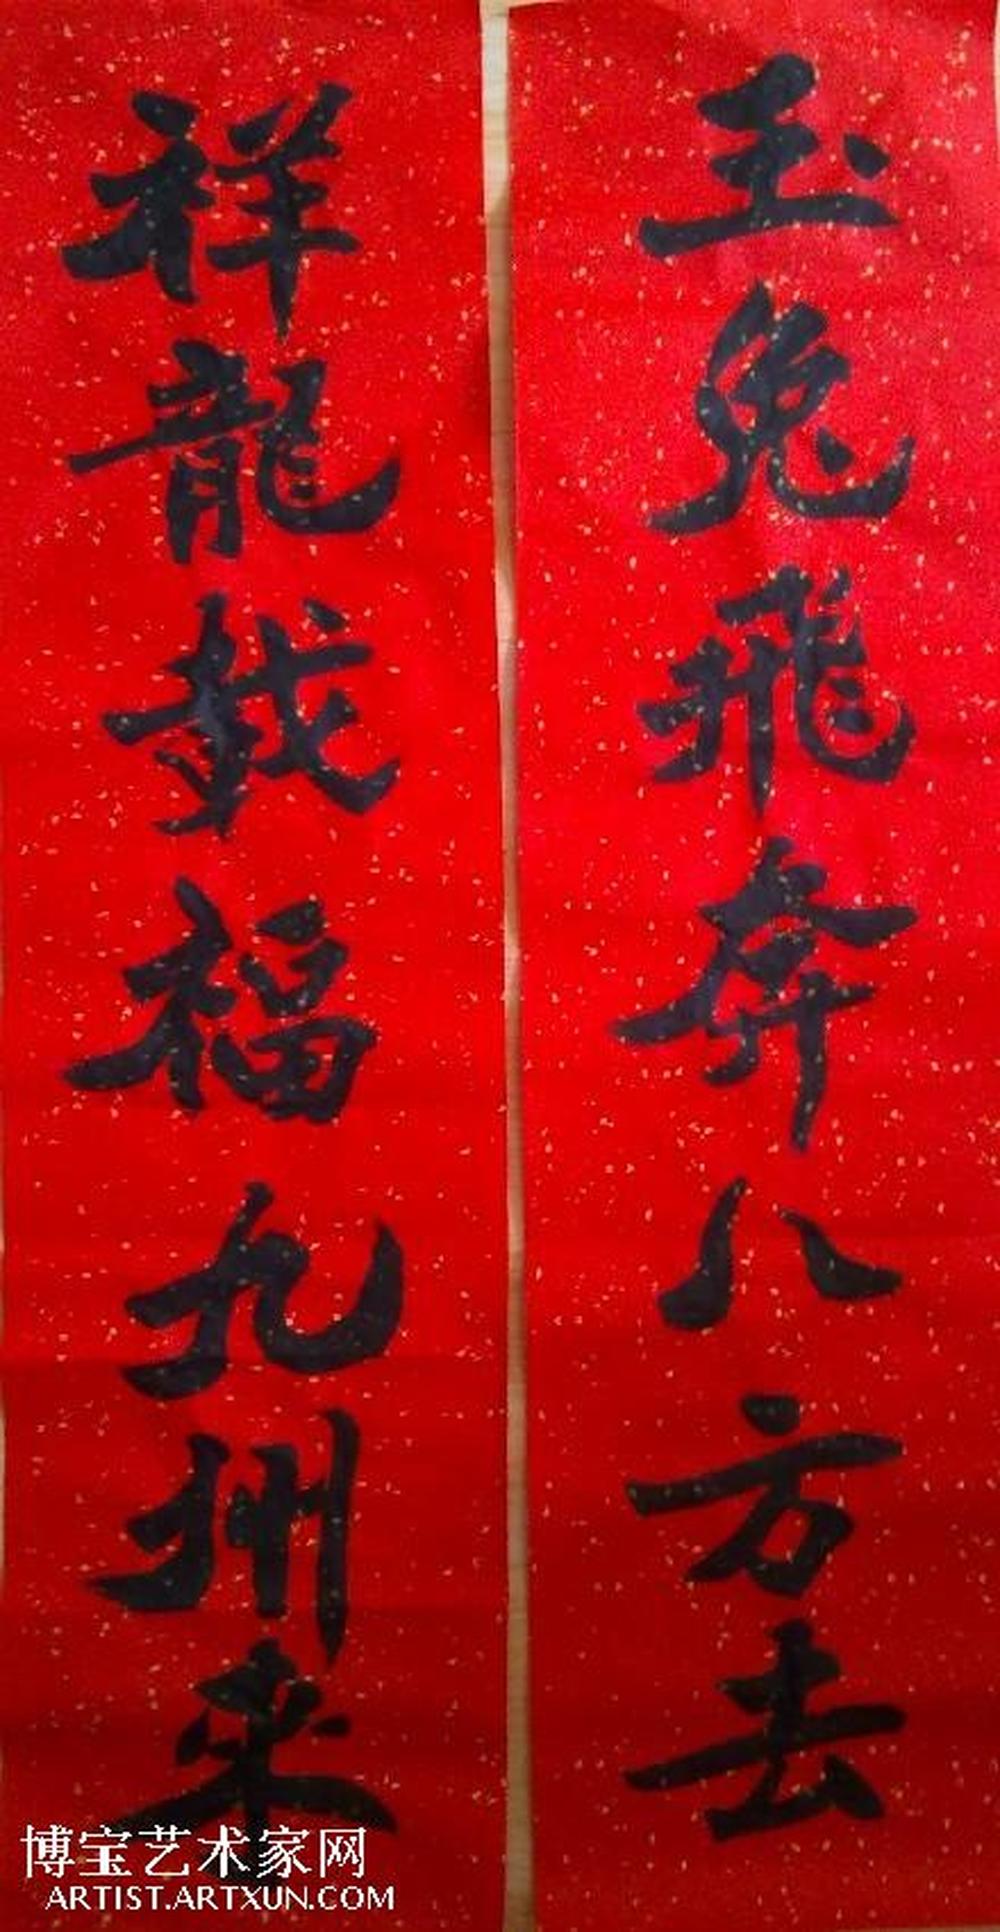 玉兔飛奔八方去
祥龍載福九州來
博宝艺术家网
ARTIST.ARTXUN.COM